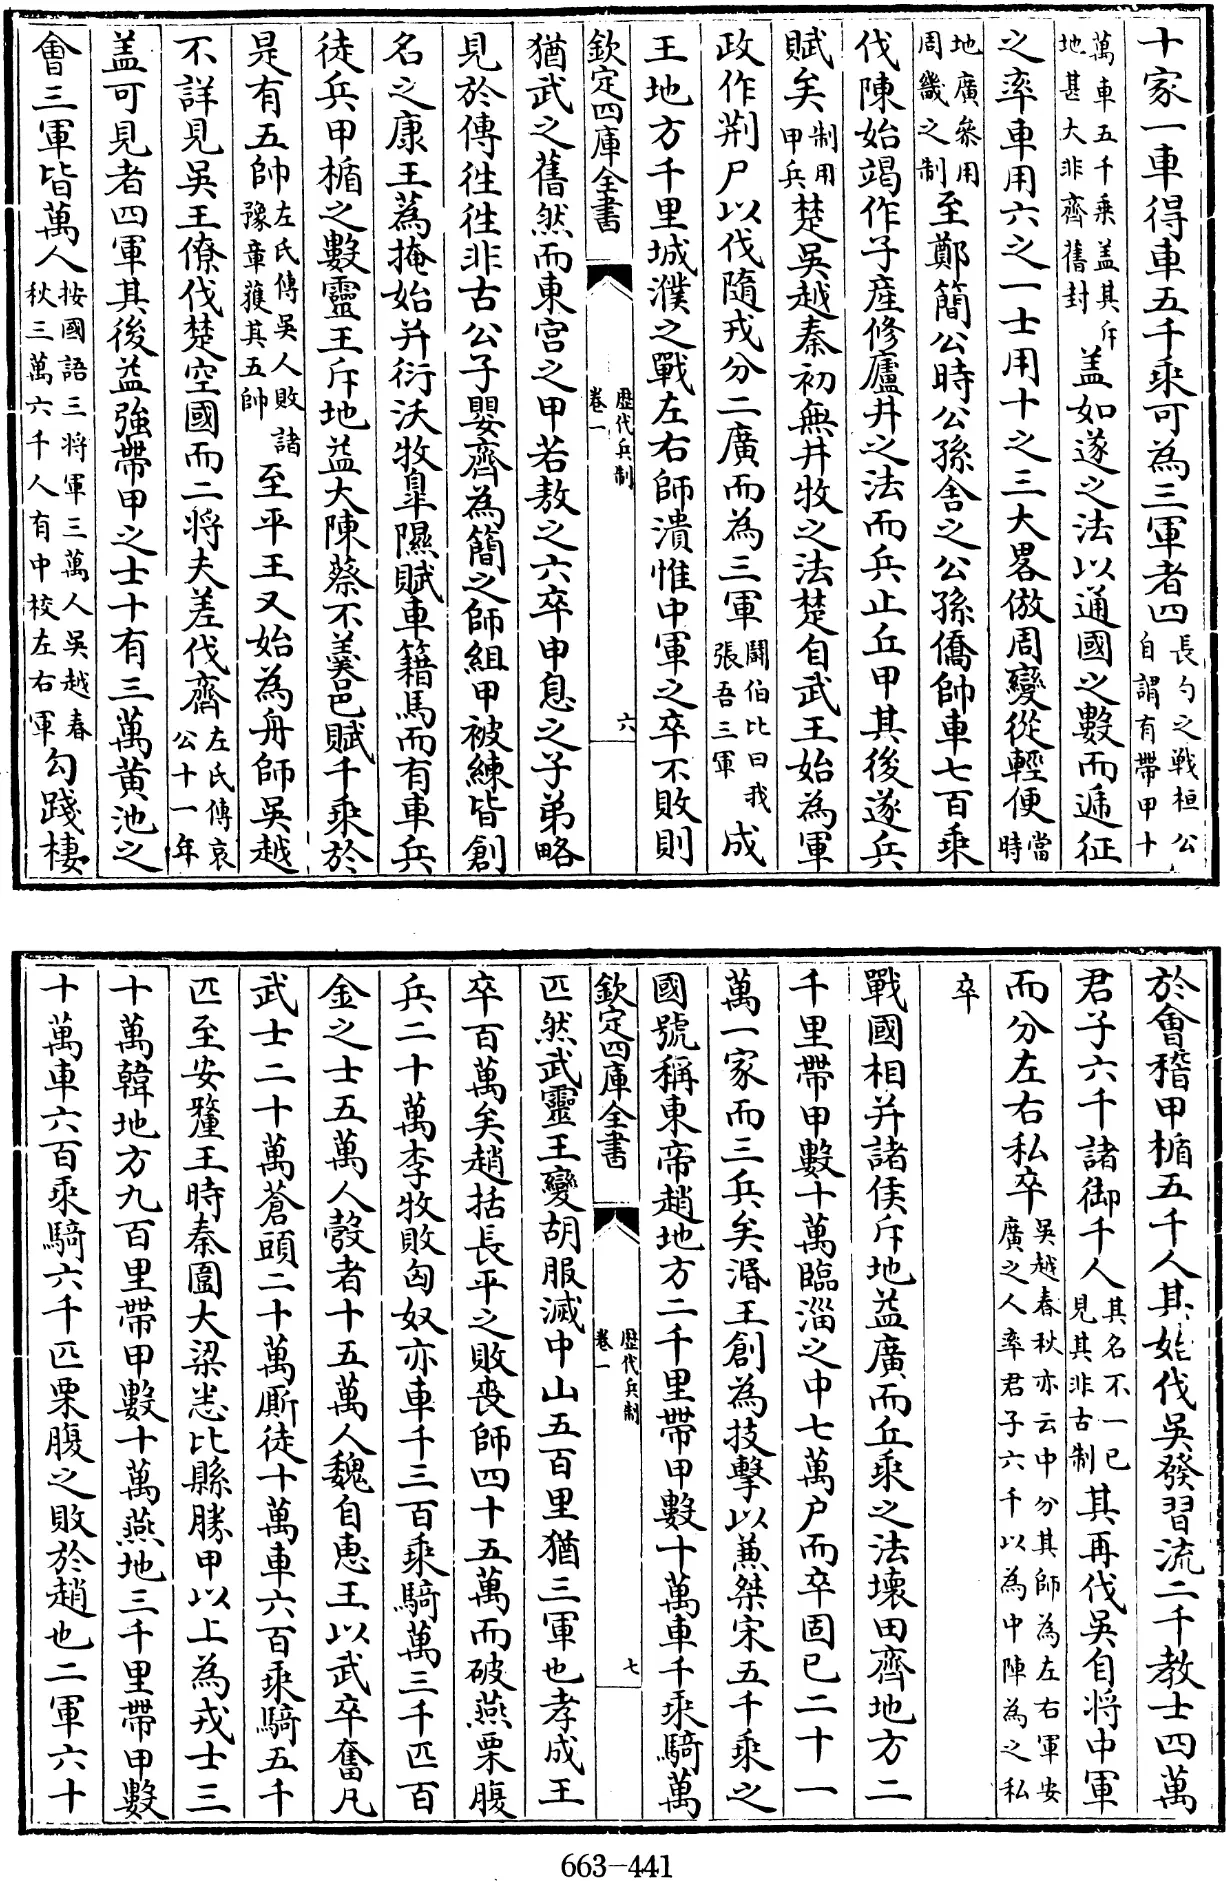 十家一車得車五千乘可為三軍者四長勺之戰桓公自謂有帶甲十
萬車五千乘盖其斥地甚大非齊舊封盖如遂之法以通國之數而遞征
之率車用六之一士用十之三大畧倣周變從輕便當時
地廣叅用周畿之制至鄭簡公時公孫舍之公孫僑帥車七百乘
伐陳始竭作子産修廬井之法而兵止丘甲其後遂兵
賦矣制用甲兵楚吳越秦初無井牧之法楚自武王始為軍
政作荆尸以伐隨戎分二廣而為三軍鬬伯比曰我張吾三軍成
王地方千里城濮之戰左右師潰惟中軍之卒不敗則
欽定四庫全書
歷代兵制
卷一
六
猶武之舊然而東宫之甲若敖之六卒申息之子弟略
見於傳徃徃非古公子嬰齊為簡之師組甲被練皆創
名之康王為掩始并衍沃牧臯隰賦車籍馬而有車兵
徒兵甲楯之數靈王斥地益大陳蔡不羹邑賦千乘於
是有五帥左氏傳吳人敗諸豫章獲其五帥至平王又始為舟師吳越
不詳見吳王僚伐楚空國而二將夫差伐齊左氏傳哀公十一年
盖可見者四軍其後益強帶甲之士十有三萬黄池之
會三軍皆萬人按國語三將軍三萬人吳越春秋三萬六千人有中校左右軍勾踐棲
於會稽甲楯五千人其始伐吳發習流二千教士四萬
君子六千諸御千人其名不一已見其非古制其再伐吳自將中軍
而分左右私卒吳越春秋亦云中分其師為左右軍安廣之人率君子六千以為中陣為之私
卒
戰國相并諸侯斥地益廣而丘乘之法壞田齊地方二
千里帶甲數十萬臨淄之中七萬户而卒固已二十一
萬一家而三兵矣湣王創為技擊以兼桀宋五千乘之
國號稱東帝趙地方二千里帶甲數十萬車千乘騎萬
欽定四庫全書
歷代兵制
卷一
七
匹然武靈王變胡服滅中山五百里猶三軍也孝成王
卒百萬矣趙括長平之敗喪師四十五萬而破燕栗腹
兵二十萬李牧敗匈奴亦車千三百乘騎萬三千匹百
金之士五萬人彀者十五萬人魏自惠王以武卒奮凡
武士二十萬蒼頭二十萬厮徒十萬車六百乘騎五千
匹至安釐王時秦圍大梁悉比縣勝甲以上為戎士三
十萬韓地方九百里帶甲數十萬燕地三千里帶甲數
十萬車六百乘騎六千匹栗腹之敗於趙也二軍六十
663-441